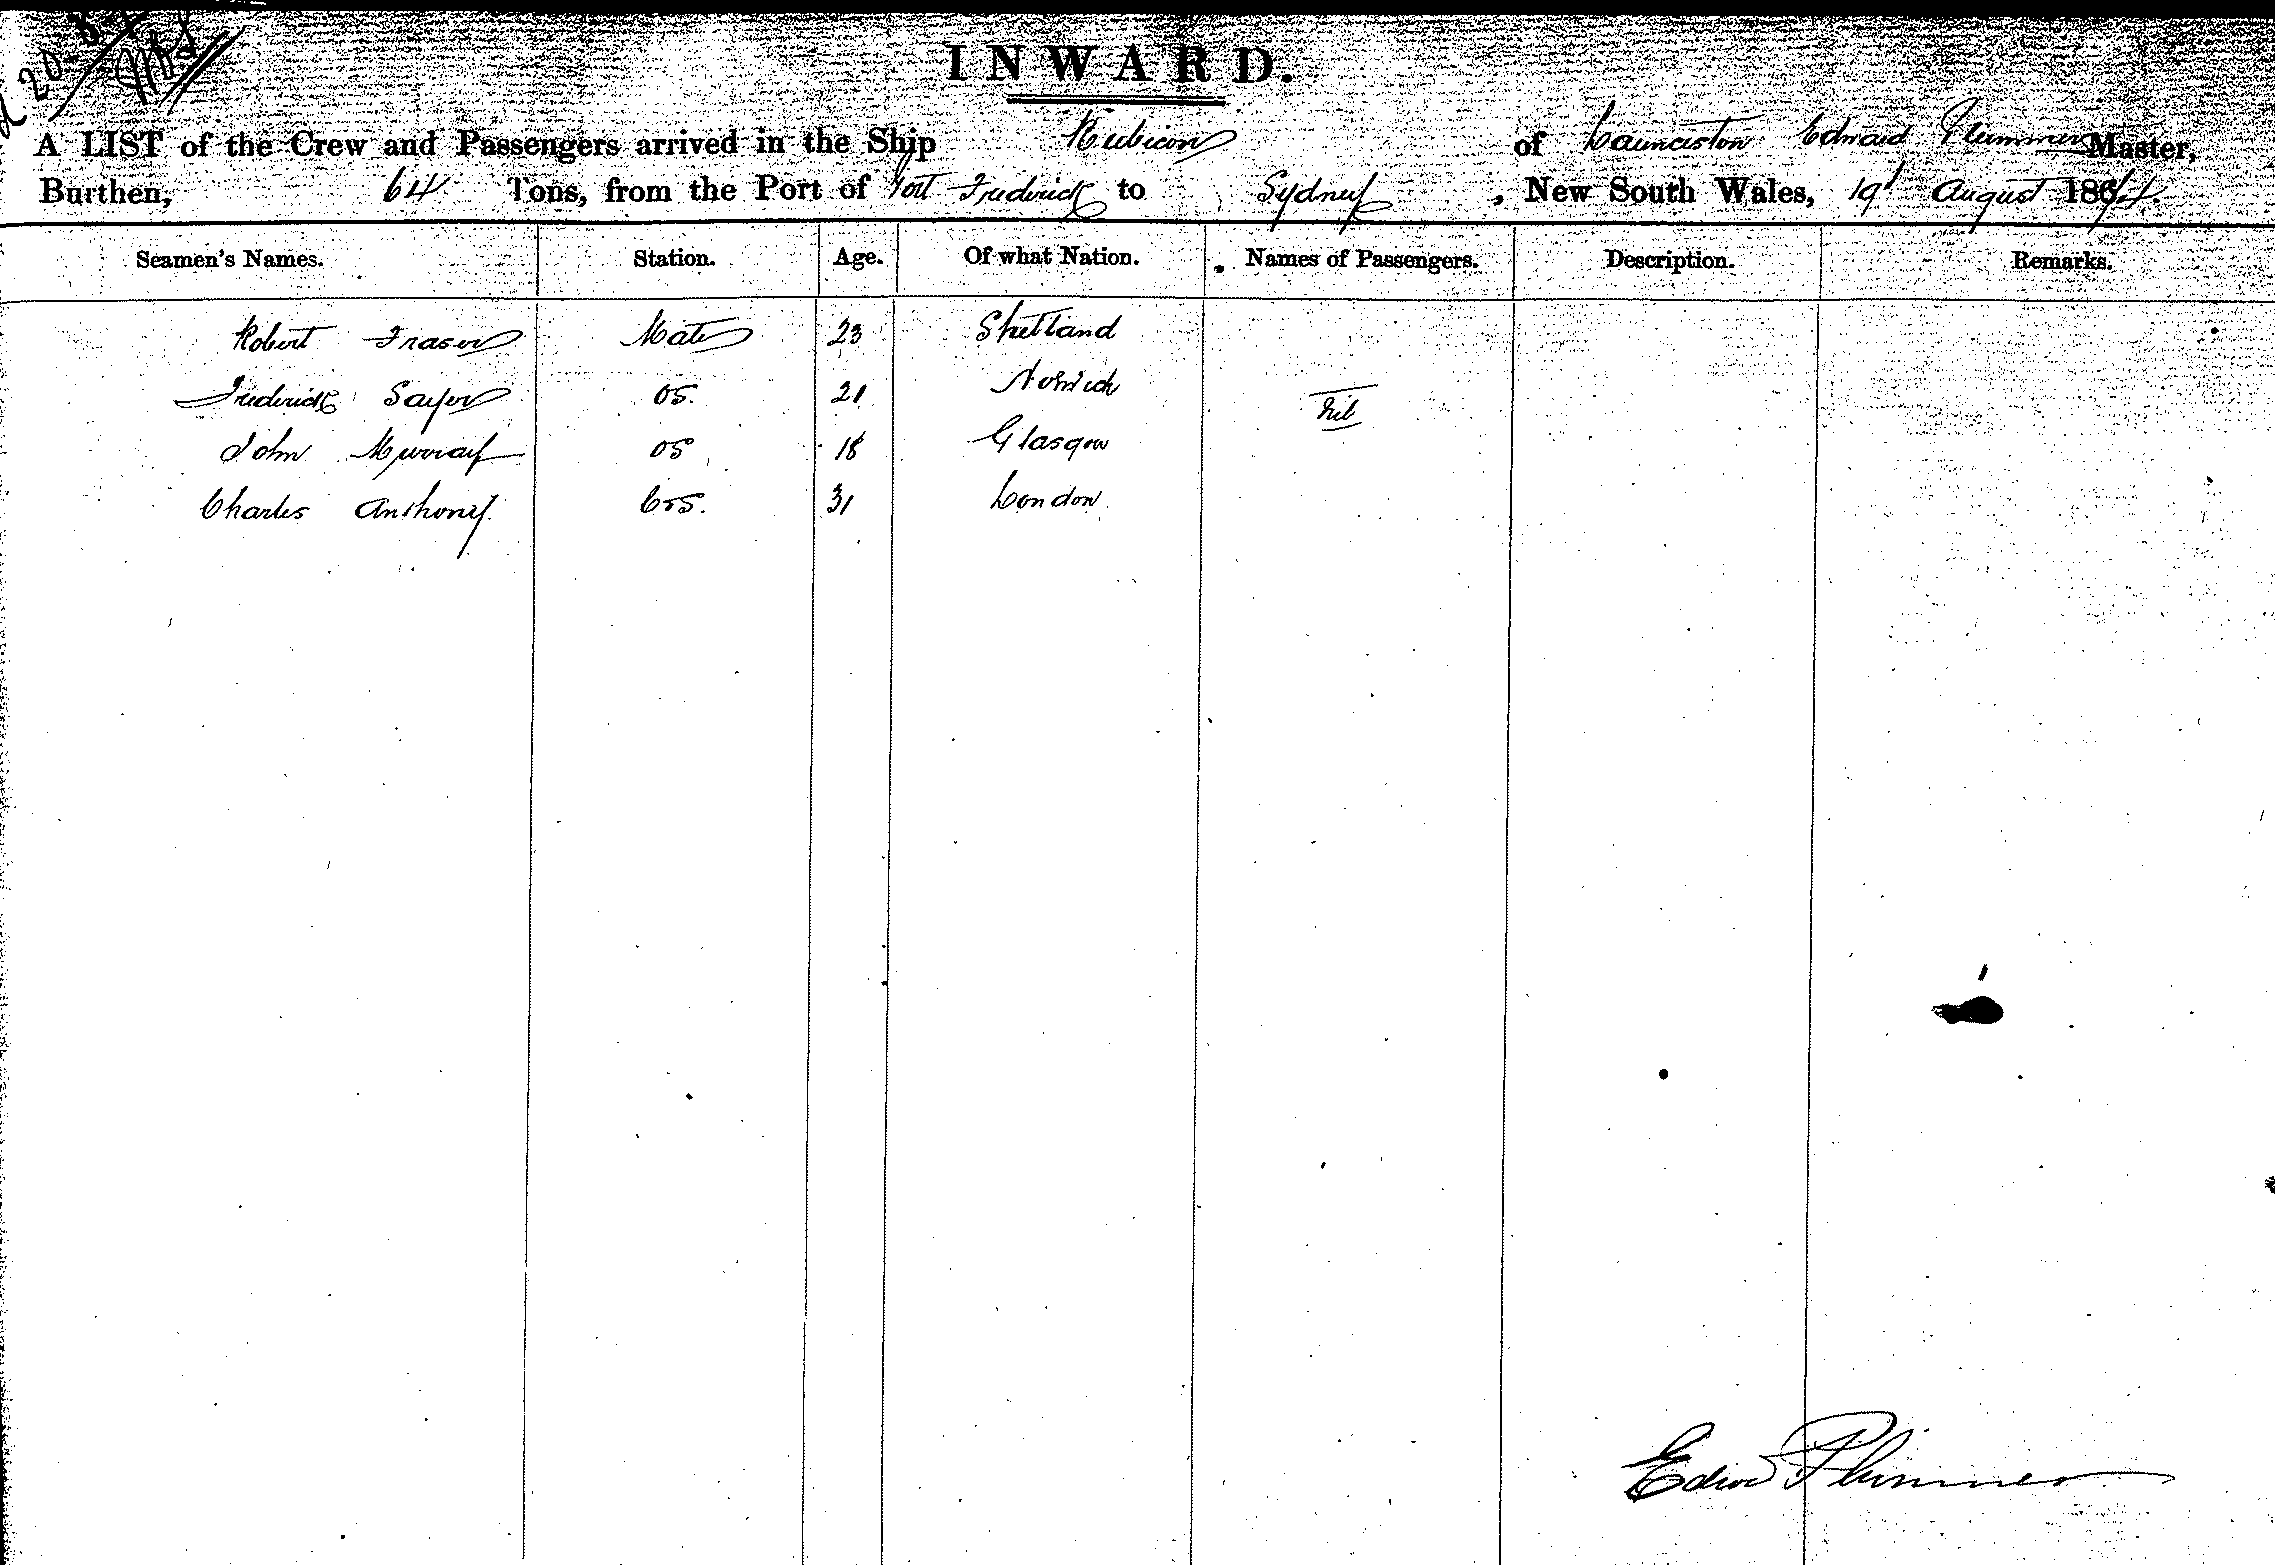 20-8
INWARD.
A LIST of the Crew and Passengers arrived in the Ship Rubicon of Launceston Edward Plummer Master,
Burthen, 64 Tons, from the Port of Port Frederick to Sydney, New South Wales, 19th August 1864.
Seamen's Names. Station. Age. Of what Nation. Names of Passengers. Description. Remarks.
Robert Fraser Mate 23 Shetland
Frederick Sayer OS. 21 Norwich Nil
John Murray OS 18 Glasgow
Charles Anthony 31 London
Edwd Plummer